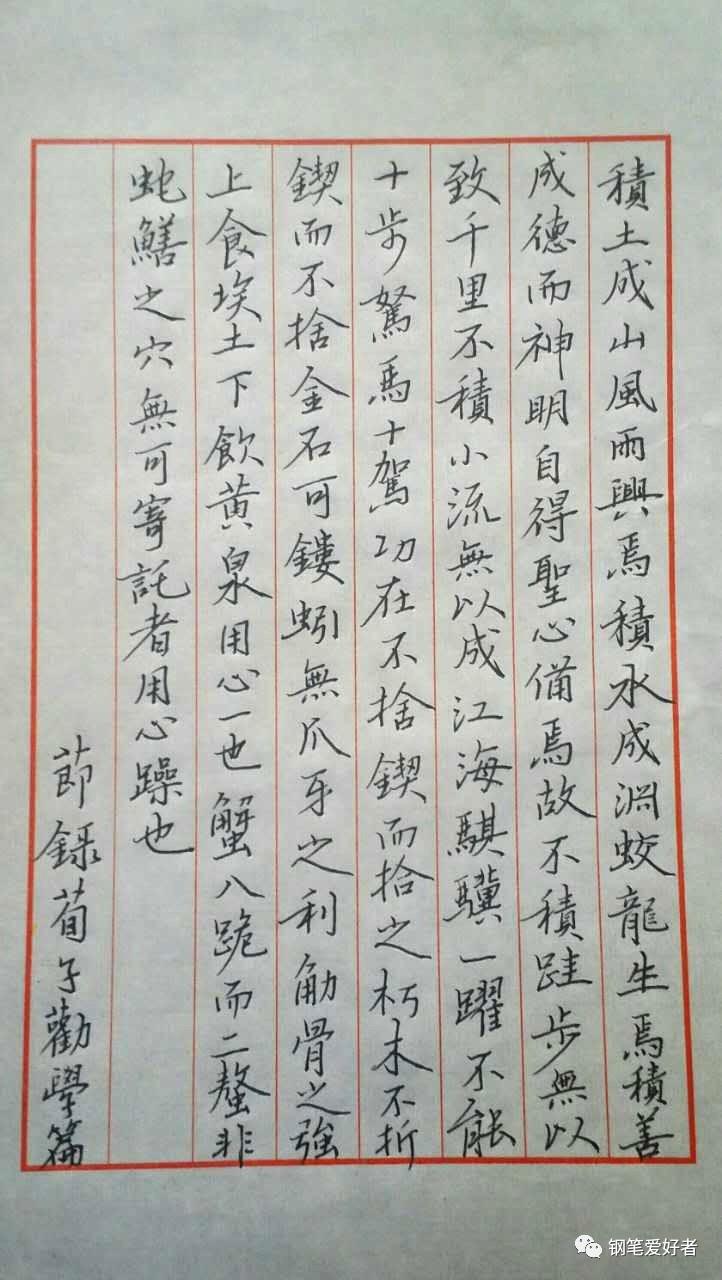 積土成山風雨興焉積水成淵蛟龍生焉積善
成德而神明自得聖心備焉故不積跬步無以
致千里不積小流無以成江海騏驥一躍不能
十步駑馬十駕功在不捨鍥而捨之朽木不折
鍥而不捨金石可鏤蚓無爪牙之利觔骨之強
上食埃土下飲黃泉用心一也蟹八跪而二螯非
蛇鱔之穴無可寄託者用心躁也
節錄荀子勸學篇
钢笔爱好者